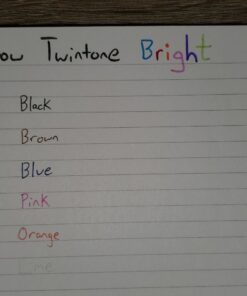 ow Twintone Bright
Black
Brown
Blue
Pink
Orange
Lime